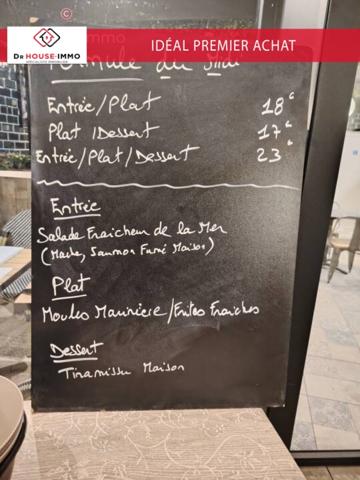 DR HOUSE-IMMO
IDÉAL PREMIER ACHAT
Formule du Midi
Entrée/Plat 18€
Plat/Dessert 17€
Entrée/Plat/Dessert 23€
Entrée
Salade Fraicheur de la Mer
(Mache, Saumon Fumé Maison)
Plat
Moules Marinière/Frites Fraiches
Dessert
Tiramissu Maison